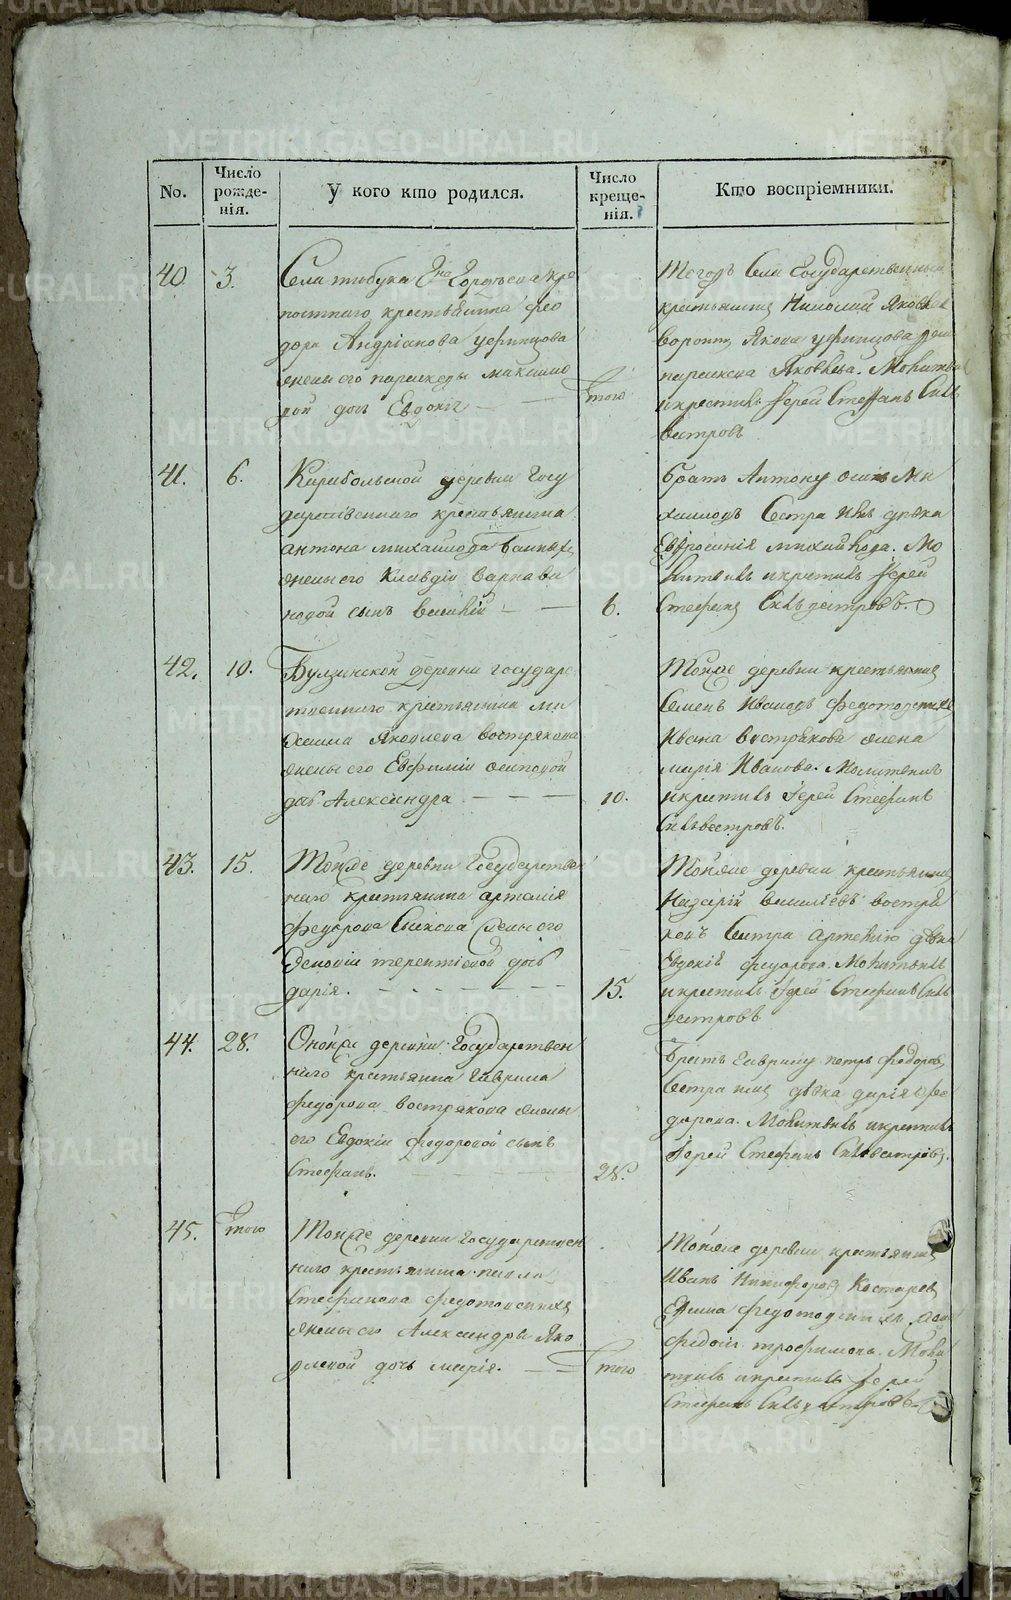 METRIKI.GASO-URAL.RU
No.
Число
рожде-
нія.
У кого кто родился.
Число
креще-
нія.
Кто воспріемники.
40
3.
Села
постнаго крестьянина Фео
дора Андріанова Уфинцова
жены его Параскевы Максимо
вой дочь Евдокія
того
Тогожъ Села Государственный
крестьянинъ Николай Яковлевъ
Якова Уфинцова
Параскева Яковлева. Молитвилъ
и крестилъ Іерей Стефанъ Сил
вестровъ
41.
6.
деревни Госу
дарственнаго крестьянина
Антона Михайлова
жены его Клавдіи Варнави
новой сынъ Василій
6.
братъ Антону Осипъ Ми
хайловъ Сестра ихъ дѣвка
Евфросинія Михайлова. Мо
литвилъ и крестилъ Іерей
Стефанъ Сильвестровъ.
42.
10.
Булзинской деревни Государс
твеннаго крестьянина Ми
хаила Яковлева Вострякова
жены его Евфиміи Осиповой
дочь Александра
10.
Тойже деревни крестьянинъ
Семенъ Ивановъ Федотовскихъ
Ивана Вострякова жена
Марія Иванова. Молитвилъ
и крестилъ Іерей Стефанъ
Сильвестровъ.
43.
15.
Тойже деревни Государствен
наго крестьянина Артемія
Федорова жены его
Терентіевой дочь
Дарія.
15.
Тойже деревни крестьянинъ
Назарій Васильевъ Востря
ковъ Сестра Артемію дѣвка
Евдокія Федорова. Молитвилъ
и крестилъ Іерей Стефанъ Силь
вестровъ
44.
28.
Онойже деревни Государствен
наго крестьянина Гаврила
Федорова Вострякова жены
его Евдокіи Федоровой сынъ
Стефанъ.
28.
Братъ Гаврилу Петръ Федоровъ,
Сестра дѣвка Дарія Фе
дорова. Молитвилъ и крестилъ
Іерей Стефанъ Сильвестровъ.
45.
того
Тойже деревни Государствен
наго крестьянина Павла
Стефанова Федотовскихъ
жены его Александры Яко
влевой дочь Марія.
того
Тойже деревни крестьянинъ
Иванъ Никифоровъ Костаревъ
Федотовскихъ
Трофимова. Моли
твилъ и крестилъ Іерей
Стефанъ Сильвестровъ.